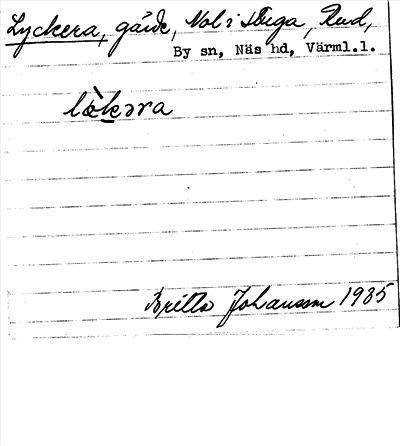 Lyckera, gärde, Nol i stuga, Rud,
By sn, Näs hd, Värml.l.
læ̀kəra
Britta Johansson 1935